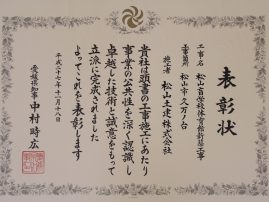 表彰状
工事名 松山盲学校体育館新築工事
工事箇所 松山市久万ノ台
施工者 松山土建株式会社
貴社は頭書の工事施工にあたり
事業の公共性を深く認識し
卓越した技術と誠意をもって
立派に完成されました
よってこれを表彰します
平成二十七年十一月十八日
愛媛県知事 中村時広